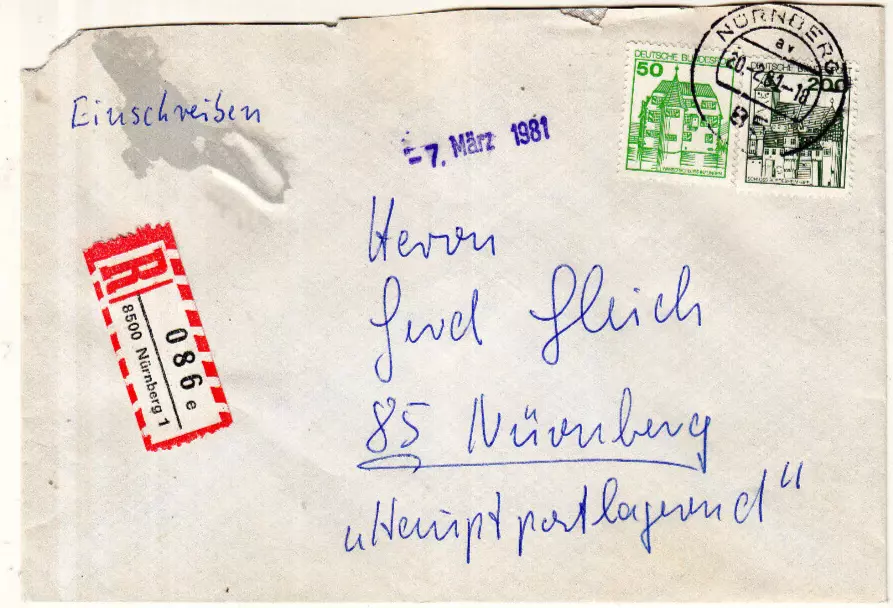 Einschreiben
-7. März 1981
DEUTSCHE BUNDESPOST
50
200
NÜRNBERG
av
20.-2.81-18
R
8500 Nürnberg 1
086
e
Herrn
Gerd Gleich
85 Nürnberg
„Hauptpostlagernd"